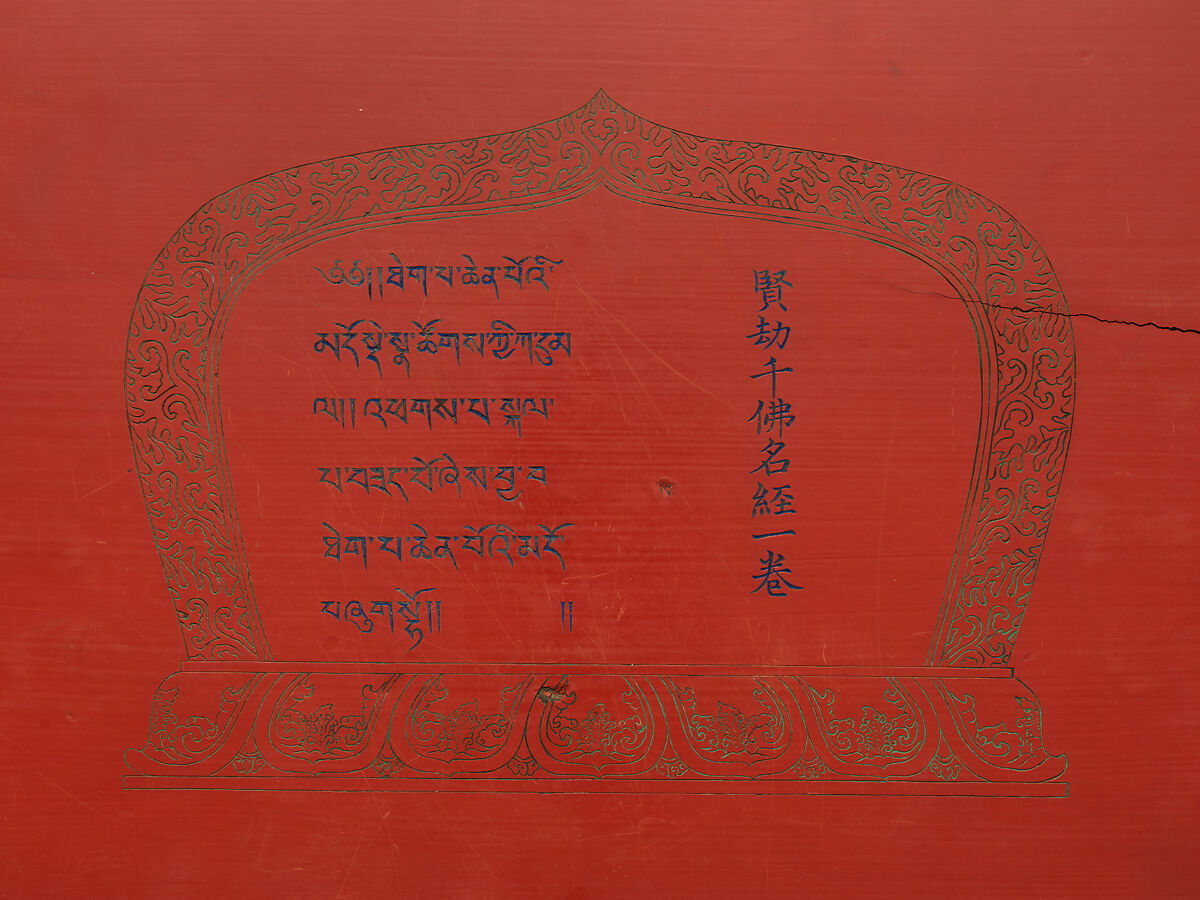 ༄༅།།ཐེག་པ་ཆེན་པོའི་
མདོ་སྡེ་སྣ་ཚོགས་ཀྱི་ཀ་དུམ
ལ།།འཕགས་པ་སྐལ་
པ་བཟང་པོ་ཞེས་བྱ་བ
ཐེག་པ་ཆེན་པོའི་མདོ་
བཞུགས་སྷོ།། །།
賢劫千佛名經一卷